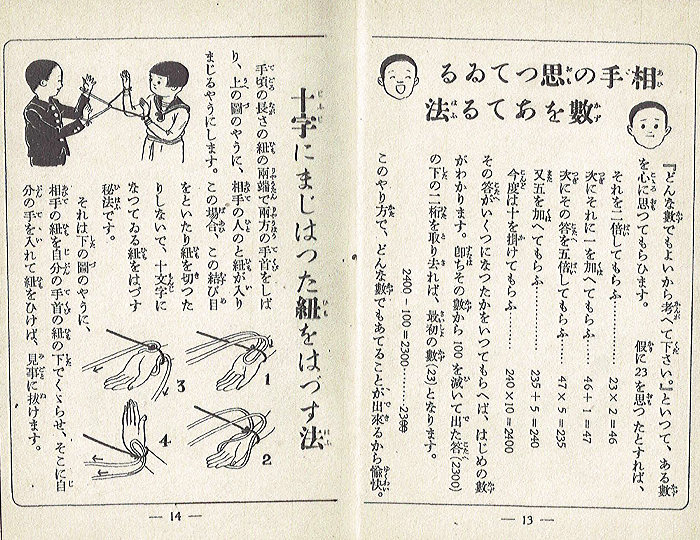 相手の思つてゐる
數をあてる法
『どんな數でもよいから考へて下さい。』といつて、ある數
を心に思つてもらひます。　假に23を思つたとすれば、
それを二倍してもらふ…………23×2=46
次にそれに一を加へてもらふ……46+1=47
次にその答を五倍してもらふ……47×5=235
又五を加へてもらふ…………235+5=240
今度は十を掛けてもらふ…………240×10=2400
その答がいくつになつたかをいつてもらへば、はじめの數
がわかります。卽ちその數から100を減いて出た答(2300)
の下の二桁を取り去れば、最初の數(23)となります。
2400-100=2300………2300
このやり方で、どんな數でもあてることが出來るから愉快。
— 13 —
十字にまじはつた紐をはづす法
手頃の長さの紐の兩端で兩方の手首をしば
り、上の圖のやうに、相手の人のと紐が入り
まじるやうにします。この場合、この結び目
をといたり紐を切つた
りしないで、十文字に
なつてゐる紐をはづす
秘法です。
それは下の圖のやうに、
相手の紐を自分の手首の紐の下でくゞらせ、そこに自
分の手を入れて紐をひけば、見事に拔けます。
1
2
3
4
— 14 —